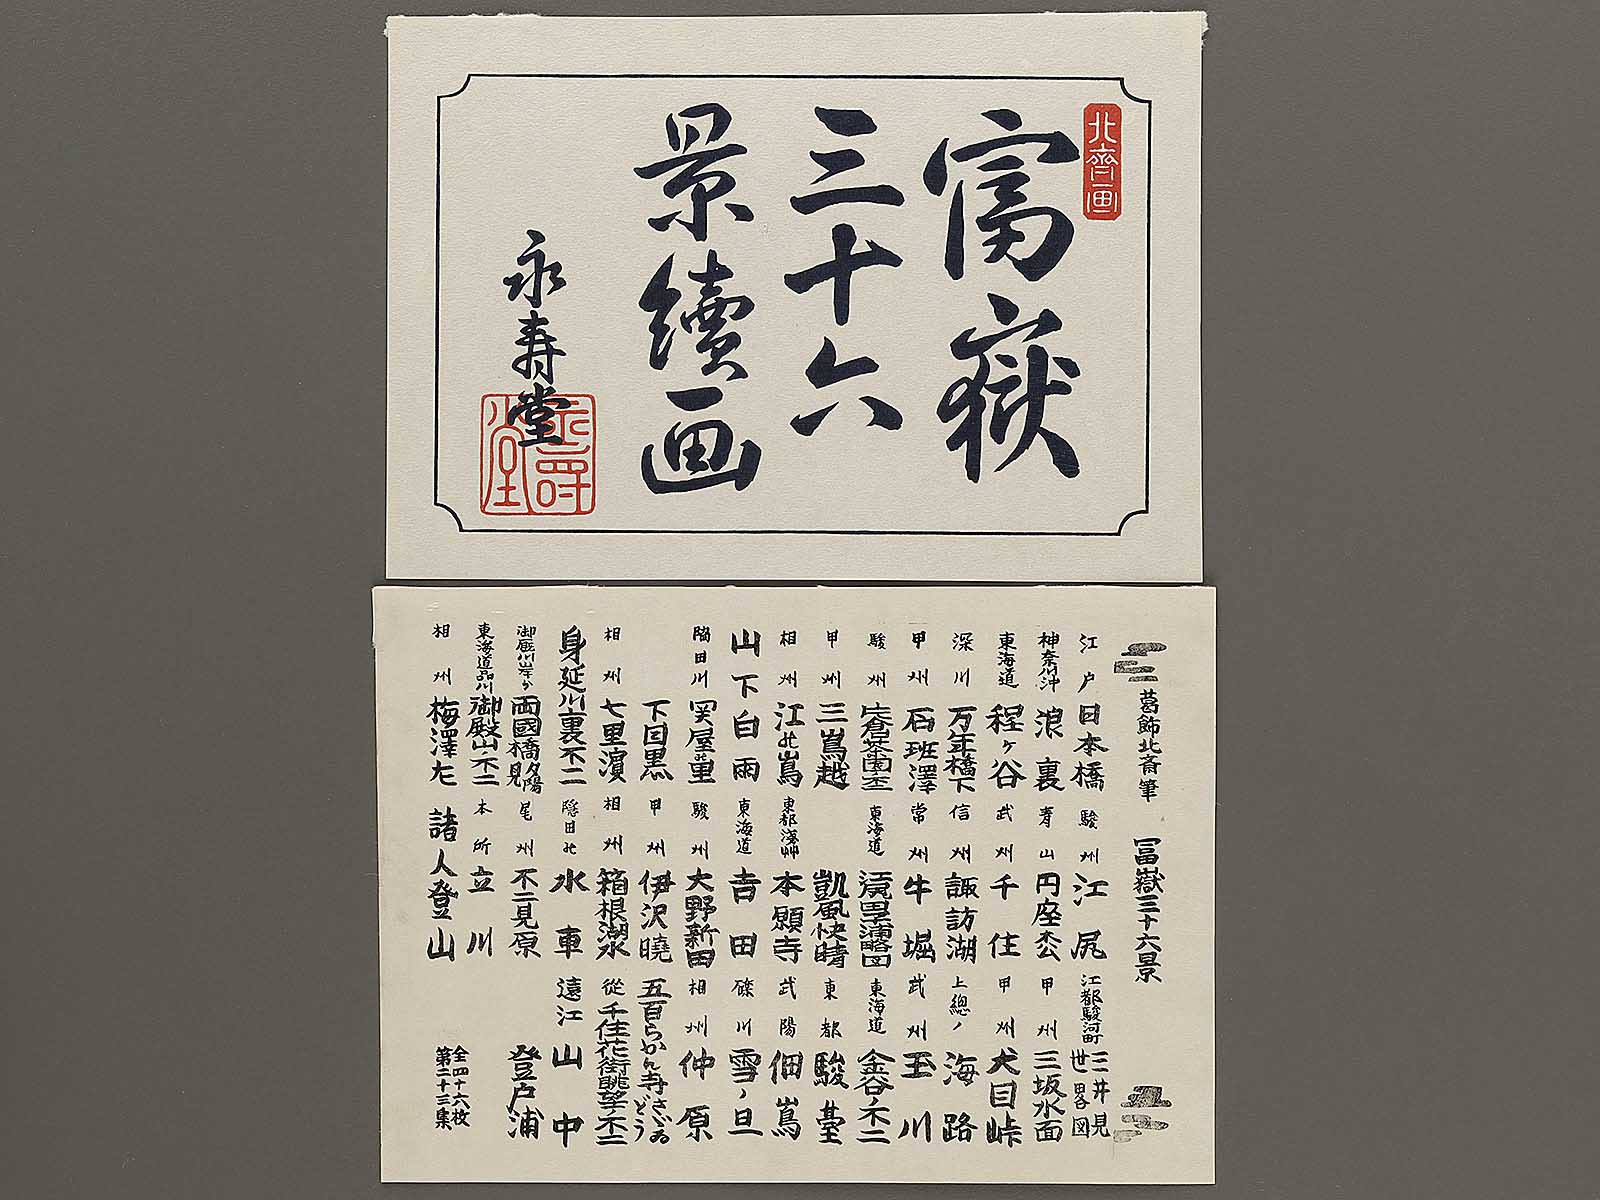 北齊画
富嶽
三十六
景續画
永寿堂
葛飾北斎筆 冨嶽三十六景
江戸日本橋
駿州江尻
江都駿河町三井見世畧図
神奈川沖浪裏
青山円座枩
甲州三坂水面
東海道程ヶ谷
武州千住
甲州犬目峠
深川万年橋下
信州諏訪湖
上總ノ海路
甲州石班澤
常州牛堀
武州玉川
駿州片倉茶園不二
東海道江尻田子浦略図
東海道金谷ノ不二
甲州三嶌越
凱風快晴
東都駿臺
相州江の嶌
東都浅艸本願寺
武陽佃嶌
山下白雨
東海道吉田
礫川雪ノ旦
隅田川関屋の里
駿州大野新田
相州仲原
下目黒
甲州伊沢暁
五百らかん寺さゞゐどう
相州七里濱
相州箱根湖水
従千住花街眺望ノ不二
身延川裏不二
隠田の水車
遠江山中
御厩川岸ゟ両國橋夕陽見
尾州不二見原
登戸浦
東海道品川御殿山ノ不二
本所立川
相州梅澤左
諸人登山
全四十六枚
第二十三集